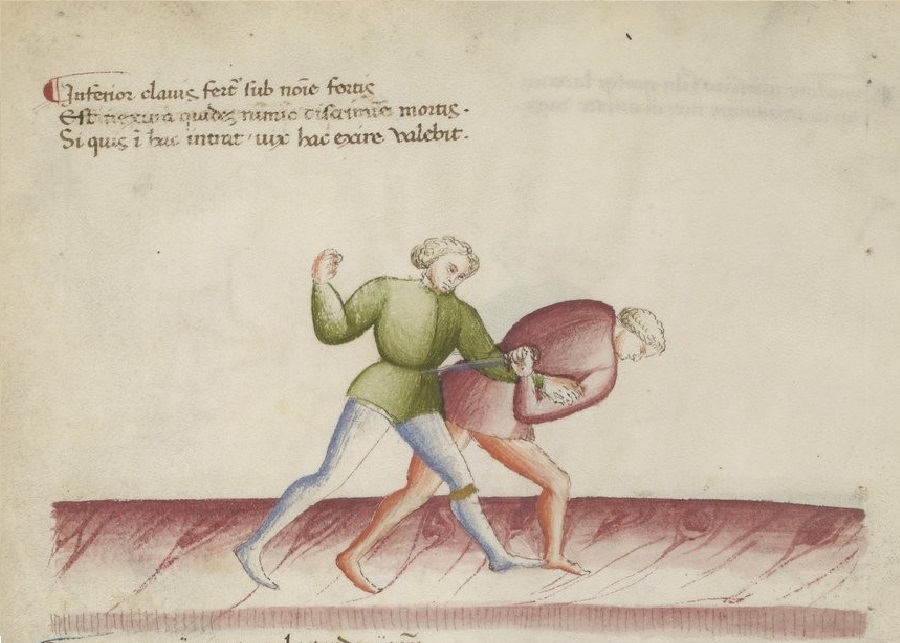 Inferior clauis fert̃ sub noīe fortis
Est nexura quidez nimio discrimīe mortis.
Si quis ī hac intrat / uix hac exire valebit.